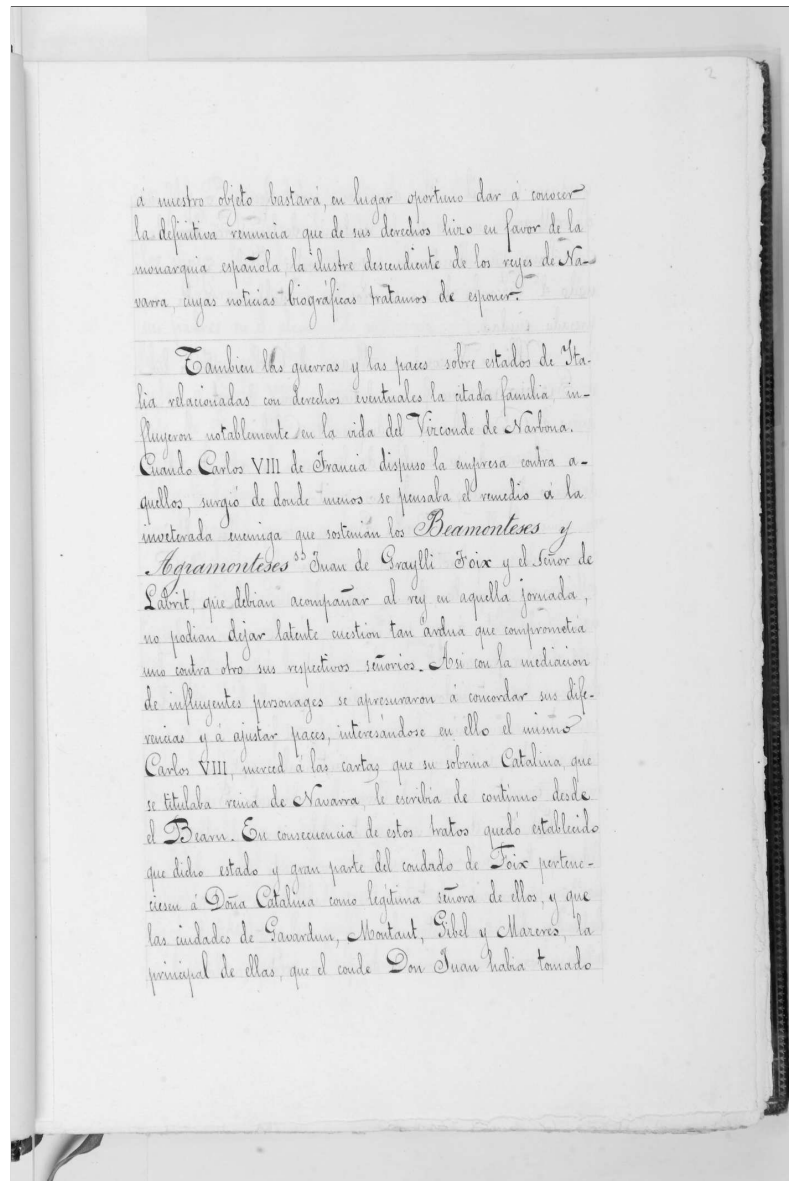 2
á nuestro objeto bastará, en lugar oportuno dar á conocer
la definitiva renuncia que de sus derechos hizo en favor de la
monarquia española, la ilustre descendiente de los reyes de Na-
varra, cuyas noticias biográficas tratamos de esponer.
Tambien las guerras y las paces sobre estados de Ita-
lia relacionadas con derechos eventuales la citada familia, in-
fluyeron notablemente en la vida del Vizconde de Narbona.
Cuando Carlos VIII de Francia dispuso la empresa contra a-
quellos, surgió de donde menos se pensaba el remedio á la
inveterada enemiga que sostenian los Beamonteses y
Agramonteses. Juan de Graylli Foix y el Señor de
Labrit, que debian acompañar al rey en aquella jornada,
no podian dejar latente cuestion tan ardua que comprometia
uno contra otro sus respectivos señorios. Asi con la mediacion
de influyentes personages se apresuraron á concordar sus dife-
rencias y á ajustar paces, interesándose en ello el mismo
Carlos VIII, merced á las cartas que su sobrina Catalina, que
se titulaba reina de Navarra, le escribia de continuo desde
el Bearn. En consecuencia de estos tratos quedó establecido
que dicho estado y gran parte del condado de Foix pertene-
ciesen á Doña Catalina como legítima señora de ellos, y que
las ciudades de Gavardun, Montaut, Gibel y Mazeres, la
principal de ellas, que el conde Don Juan habia tomado